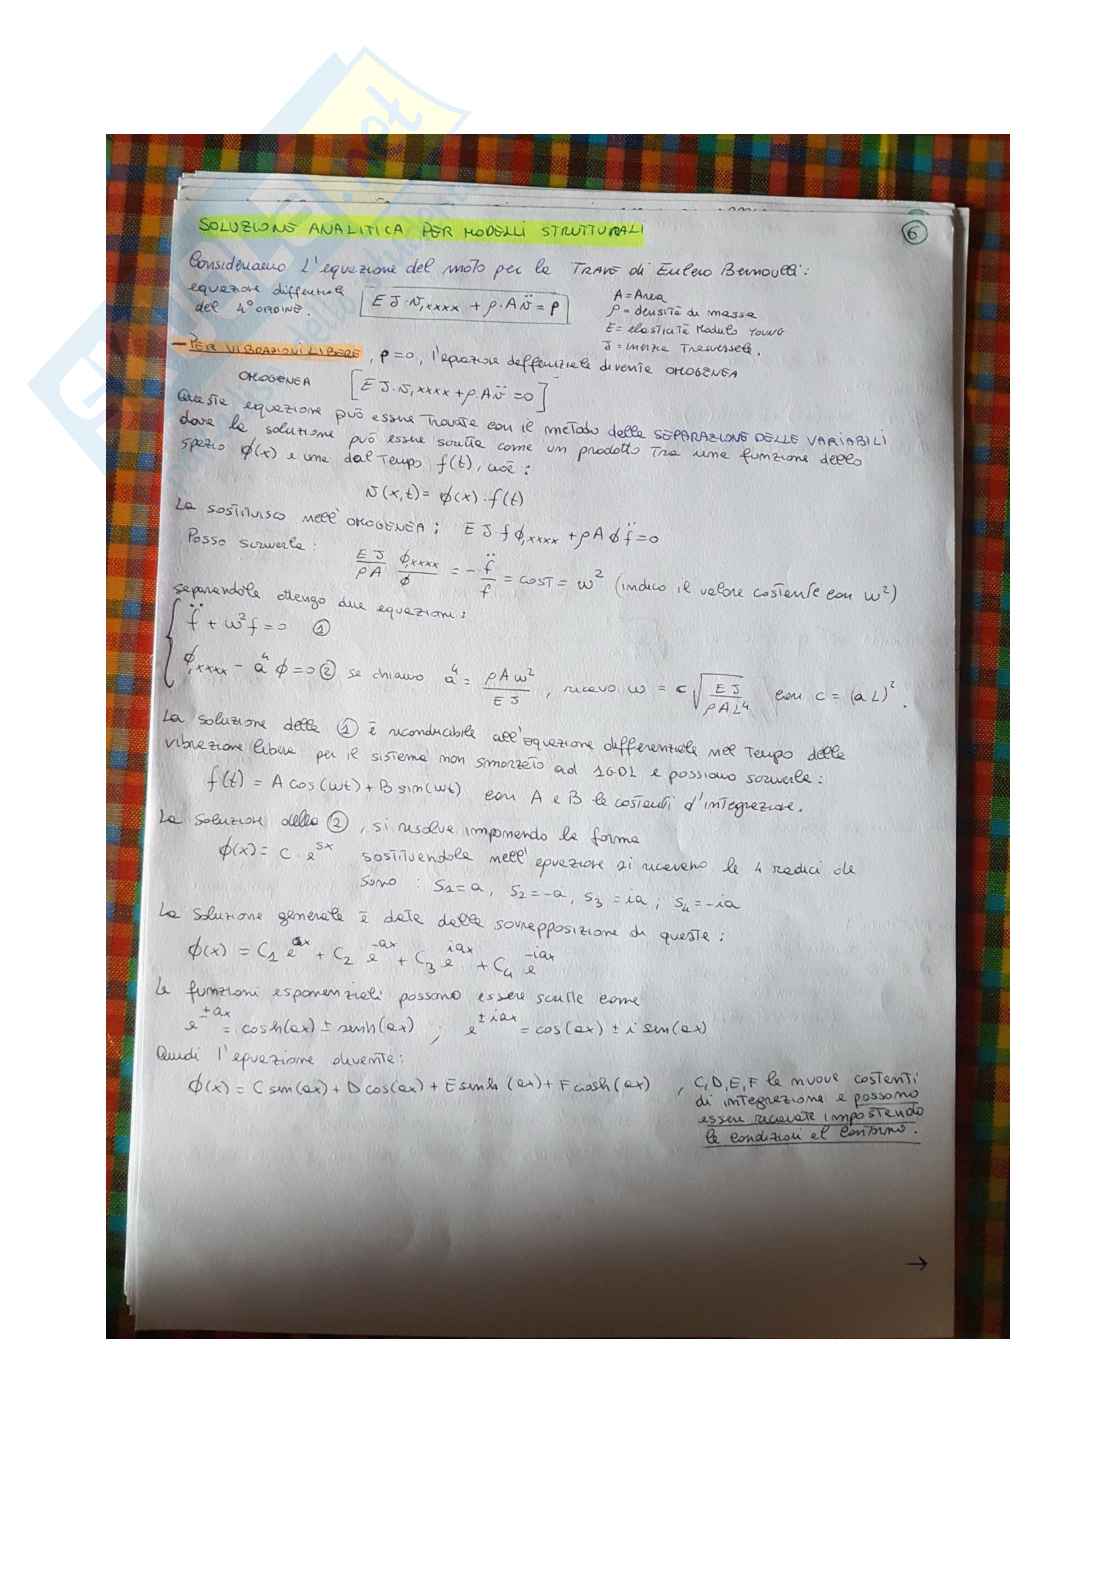 SOLUZIONE ANALITICA PER MODELLI STRUTTURALI
6
Consideriamo l'equazione del moto per la TRAVE di Eulero Bernoulli:
equazione differenziale
del 4° ORDINE.
EJ·v,xxxx + ρ·Av̈ = p
A = Area
ρ = densità di massa
E = elasticità Modulo YOUNG
J = inerzia Trasversale.
- PER VIBRAZIONI LIBERE, p=0, l'equazione differenziale diventa OMOGENEA
OMOGENEA [EJ·v,xxxx + ρ·Av̈ = 0]
Questa equazione può essere Trovata con il metodo della SEPARAZIONE DELLE VARIABILI
dove la soluzione può essere scritta come un prodotto Tra una funzione dello
spazio ϕ(x) e una dal Tempo f(t), cioè:
v(x,t) = ϕ(x)·f(t)
La sostituisco nell'OMOGENEA: EJfϕ,xxxx + ρAϕf̈ = 0
Posso scriverla: EJ/ρA ϕ,xxxx/ϕ = - f̈/f = cost = w² (indico il valore costante con w²)
separandole ottengo due equazioni:
f̈ + w²f = 0 ①
ϕ,xxxx - a⁴ϕ = 0 ② se chiamo a⁴ = ρAw²/EJ, ricavo w = c√(EJ/ρAL⁴) con c = (aL)².
La soluzione della ① è riconducibile all'equazione differenziale nel Tempo della
vibrazione libera per il sistema non smorzato ad 1GDL e possiamo scriverla:
f(t) = A cos(wt) + B sin(wt) con A e B le costanti d'integrazione.
La soluzione della ②, si risolve imponendo la forma
ϕ(x) = C·e^sx sostituendola nell'equazione si ricavano le 4 radici che
sono: S1 = a, S2 = -a, S3 = ia; S4 = -ia
La soluzione generale è data dalla sovrapposizione di queste:
ϕ(x) = C1 e^ax + C2 e^-ax + C3 e^iax + C4 e^-iax
Le funzioni esponenziali possono essere scritte come
e^±ax = cosh(ax) ± sinh(ax); e^±iax = cos(ax) ± i sen(ax)
Quindi l'equazione diventa:
ϕ(x) = C sin(ax) + D cos(ax) + E sinh(ax) + F cosh(ax), C,D,E,F le nuove costanti
di integrazione e possono
essere ricavate impostando
le condizioni al contorno.
→